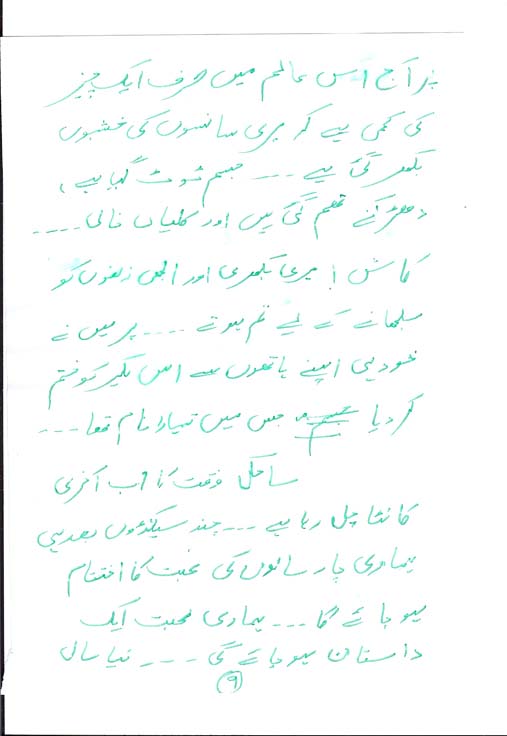 پر آج اس عالم میں صرف ایک چیز
کی کمی ہے کہ میری سانسوں کی خشبوں
بکھر گئی ہے --- جسم ٹوٹ گیا ہے ،
دھڑکنے تھم گئی ہیں اور کلیاں خالی ----
کاش ! میری بکھری اور الجھی زلفوں کو
سلجھانے کے لیے تم ہوتے ---- پر میں نے
خود ہی اپنے ہاتھوں سے اس لکیر کو ختم
کر دیا جس میں تمہارا نام تھا ---
ساحل وقت کا اب آخری
کانٹا چل رہا ہے --- چند سیکنڈوں بعد ہی
ہماری چار سالوں کی محبت کا اختتام
ہو جائے گا --- ہماری محبت ایک
داستان ہو جائے گی --- نیا سال
(۹)